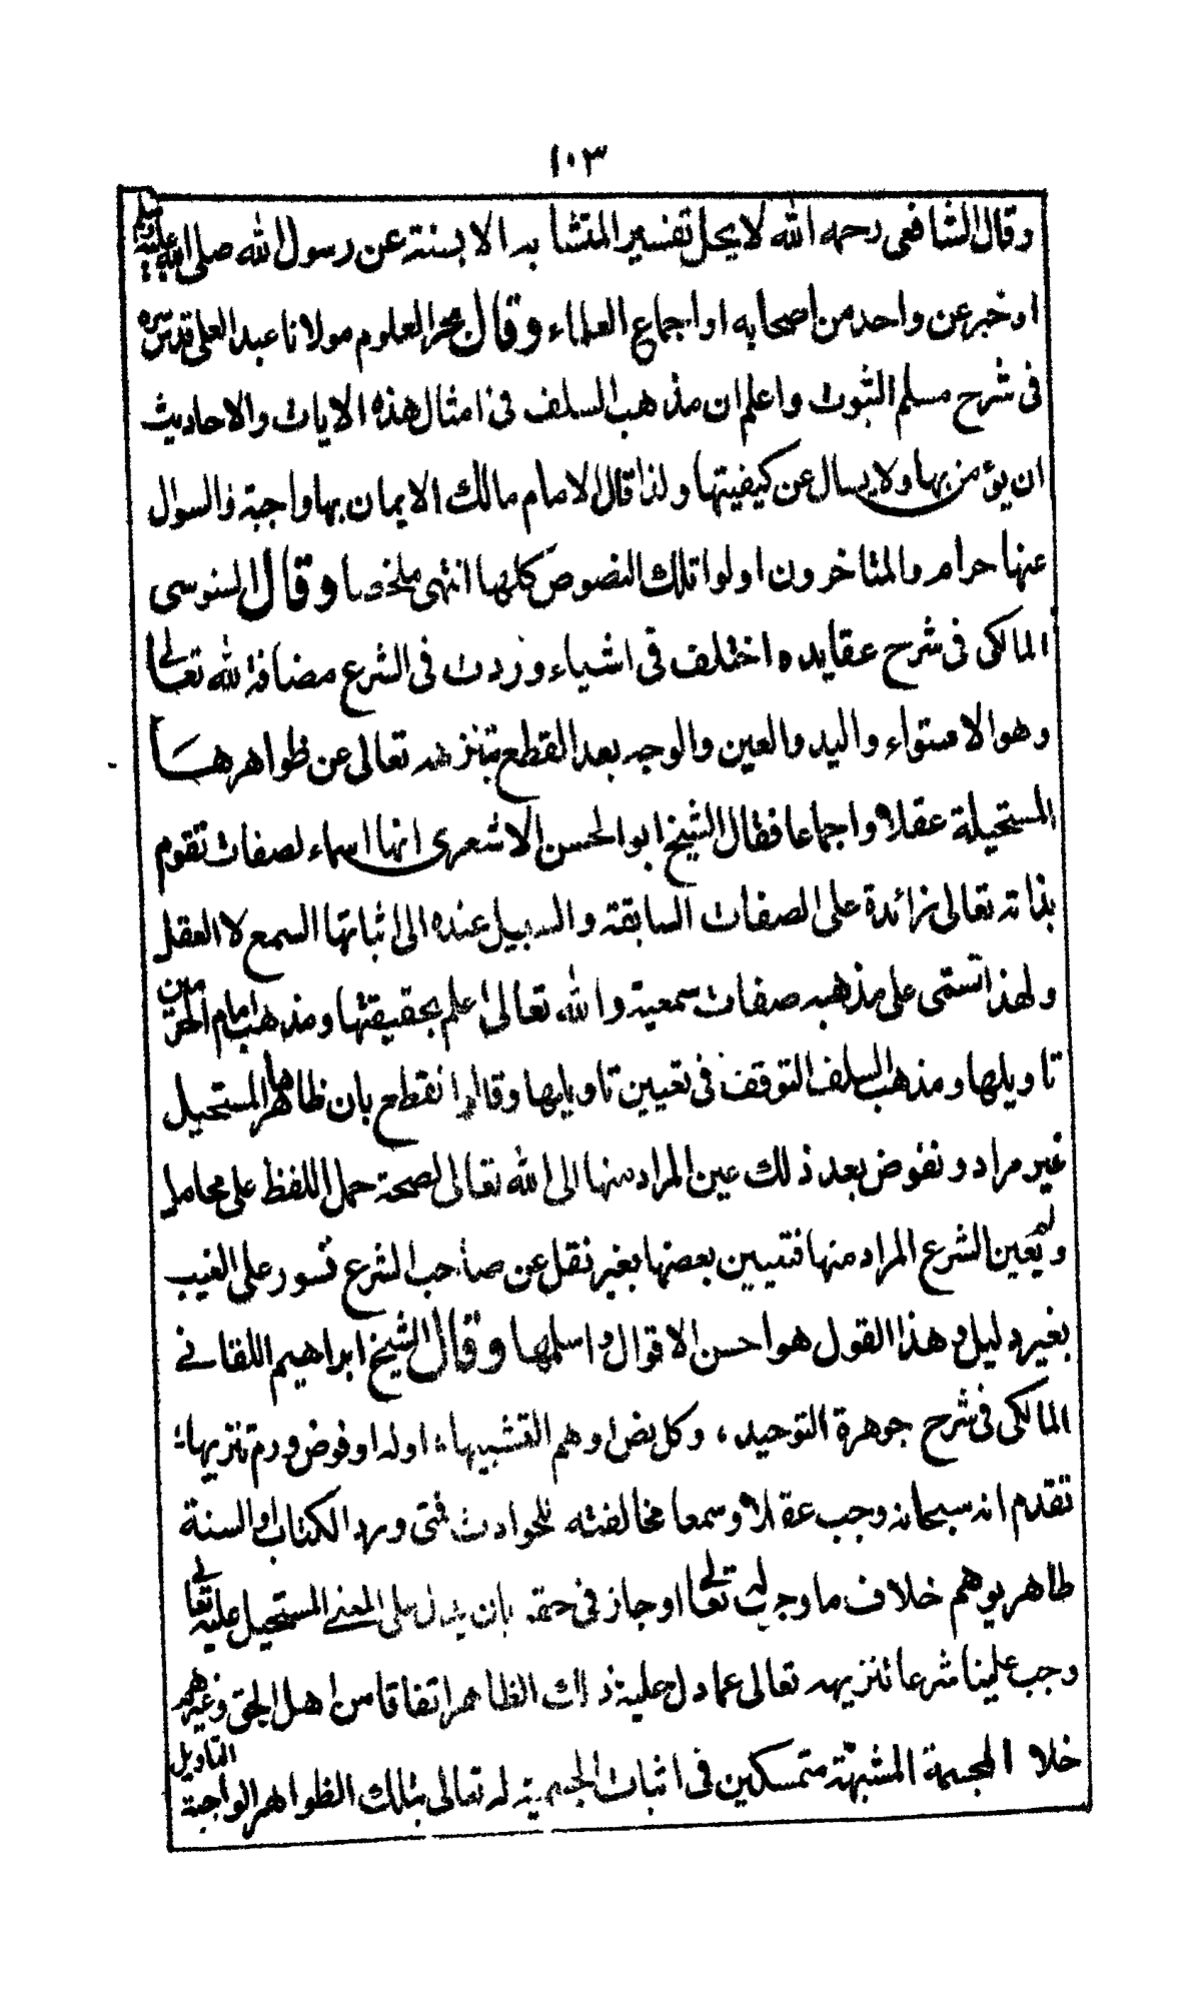 ١٠٣
وقال الشافعى رحمه الله لا يحل تفسير المتشابه الا بسنة عن رسول الله صلى الله عليه وسلم
او خبر عن واحد من اصحابه او اجماع العلماء وقال بحر العلوم مولانا عبد العلى قدس سره
فى شرح مسلم الثبوت واعلم ان مذهب السلف فى امثال هذه الايات والاحاديث
ان يؤمن بها ولا يسال عن كيفيتها ولذا قال الامام مالك الايمان بها واجبة والسوال
عنها حرام والمتاخرون اولوا تلك النصوص كلها انتهى ملخصا وقال السنوسى
المالكى فى شرح عقايده اختلف فى اشياء وردت فى الشرع مضافة لله تعالى
وهو الاستواء واليد والعين والوجه بعد القطع بتنزهه تعالى عن ظواهرها
المستحيلة عقلا واجماعا فقال الشيخ ابو الحسن الاشعرى انها اسماء لصفات تقوم
بذاته تعالى زائدة على الصفات السابقة والسبيل عنده الى اثباتها السمع لا العقل
ولهذا تسمى على مذهبه صفات سمعية والله تعالى اعلم بحقيقتها ومذهب امام الحرمين
تاويلها ومذهب السلف التوقف فى تعيين تاويلها وقالوا نقطع بان ظاهرها المستحيل
غير مراد ونفوض بعد ذلك عين المراد منها الى الله تعالى لصحة حمل اللفظ على محامل
ولم يعين الشرع المراد منها فتعيين بعضها بغير نقل عن صاحب الشرع تسور على الغيب
بغير دليل وهذا القول هو احسن الاقوال واسلمها وقال الشيخ ابراهيم اللقانے
المالكى فى شرح جوهرة التوحيد، وكل نص اوهم التشبيها؛ اوله او فوض ورم تنزيها؛
تقدم انه سبحانه وجب عقلا وسمعا مخالفته للحوادث فمتى ورد الكتاب او السنة
ظاهر يوهم خلاف ما وجب له تعالى او جاز فى حقه بان يدل على المعنے المستحيل عليه تعالى
وجب علينا شرعا تنزيهه تعالى عما دل عليه ذلك الظاهر اتفاقا من اهل الحق وغيرهم
خلا المجسمة المشبهة متمسكين فى اثبات الجسمية له تعالى بتلك الظواهر الواجبة التاويل